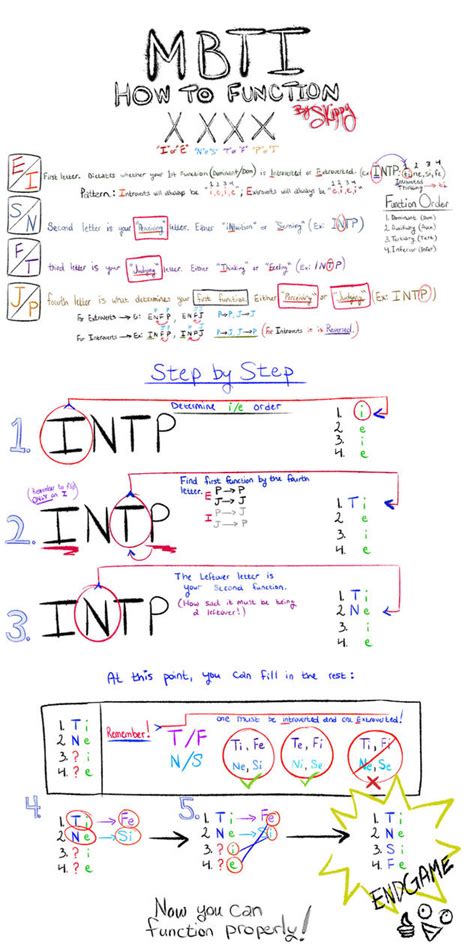 MBTI
HOW TO FUNCTION
By Skippy
X X X X
"I" or "E" "N" or "S" "T" or "F" "P" or "J"
E/I
First letter. Dictates whether your 1st Function (Dominant/Dom) is Introverted or Extroverted. (ex: INTP:
1 2 3 4
Introverted
Thinking
Pattern: Introverts will always be "i, e, i, e"; Extroverts will always be "e, i, e, i"
1 2 3 4
1 2 3 4
Function Order
1. Dominant (Dom)
2. Auxiliary (Aux)
3. Tertiary (Tert)
4. Inferior (Infer)
S/N
Second letter is your "Perceiving" letter. Either "iNtuition" or "Sensing" (Ex: INTP)
F/T
third letter is your "Judging" letter. Either "Thinking" or "Feeling" (Ex: INTP)
J/P
fourth letter is what determines your first function. Either "Perceiving" or "Judging" (Ex: INTP)
For Extroverts → Ex: ENFP ENFJ P→P, J→J
For Introverts → Ex: INFP INFJ P→J, J→P (For Introverts it is Reversed.)
Step by Step
1.
INTP
Determine i/e order
1. i
2. e
3. i
4. e
2.
INTP
Find first function by the fourth
letter.
E P→P
J→J
I P→J
J→P
1. Ti
2. e
3. i
4. e
3.
INTP
The leftover letter is
your second function.
(How sad it must be being
a leftover!)
1. Ti
2. Ne
3. i
4. e
At this point, you can fill in the rest:
1. Ti
2. Ne
3. ? i
4. ? e
Remember!
one must be introverted and one Extroverted!
T/F
N/S
Ti, Fe
Ne, Si
Te, Fi
Ni, Se
Ti, Fi
Ne, Se
4.
1. Ti → Fe
2. Ne → Si
3. ? i
4. ? e
5.
1. Ti → Fe
2. Ne → Si
3. ? i
4. ? e
1. Ti
2. Ne
3. Si
4. Fe
ENDGAME
Now you can
function properly!